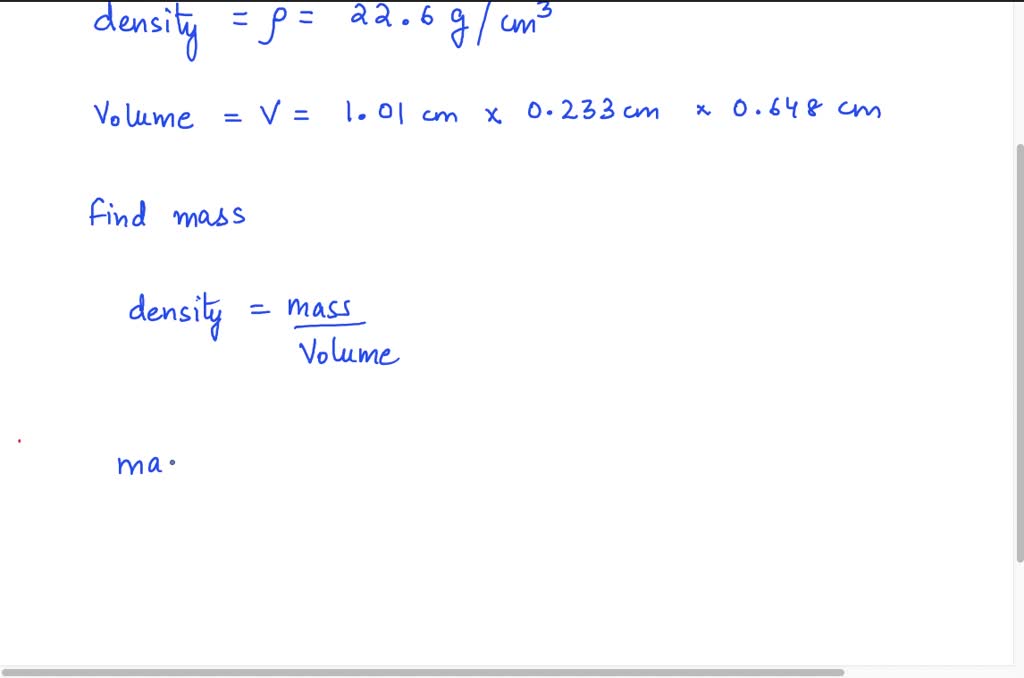 density = ρ = 22.6 g/cm³
Volume = V = 1.01 cm x 0.233 cm x 0.648 cm
find mass
density = mass
Volume
ma